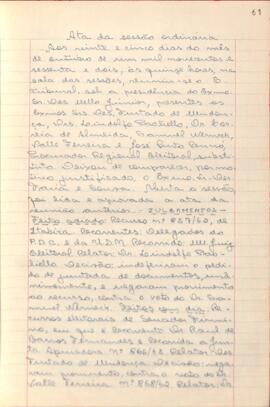 61
Ata da sessão ordinária
Aos vinte e cinco dias do mês
de outubro de um mil novecentos e
sessenta e dois, às quinze horas, na
sala das sessões, reuniu-se o E.
Tribunal, sob a presidência do Exmo.
Sr. Des. Mello Júnior, presentes os
Exmos. Srs. Des. Furtado de Mendon-
ça, Drs. Lourdelfo Cor
reia de Almeida, Samuel Werneck,
Valle Ferreira e José Pinto Penna,
Procurador Regional Eleitoral, substi-
tuto. Deixou de comparecer, por mo-
tivo justificado, o Exmo. Sr. Des.
Faria e Souza. Aberta a sessão
foi lida e aprovada a ata da
reunião anterior. - JULGAMENTOS -
Feito adiado: Recurso nº 857/62, de
Itabira. Recorrentes: Delegados do
P.D.C. e da U.D.N. Recorrido: M. Juiz
Eleitoral. Relator: Dr. Lourdelfo
Decisão: indeferiram o pedi-
do de juntada de documentos, una-
nimemente, e negaram provimento
ao recurso, contra o voto do Dr. Sa-
muel Werneck. Feitos com dia: Re-
cursos eleitorais de Senador Firmi-
no, em que é Recorrente Dr. Raul de
Barros Fernandes e Recorrida a Jun-
ta Apuradora: Nº 866/62. Relator: Des.
Furtado de Mendonça. Decisão: nega-
ram provimento, contra o voto do Dr.
Valle Ferreira. Nº 868/62. Relator: Dr.